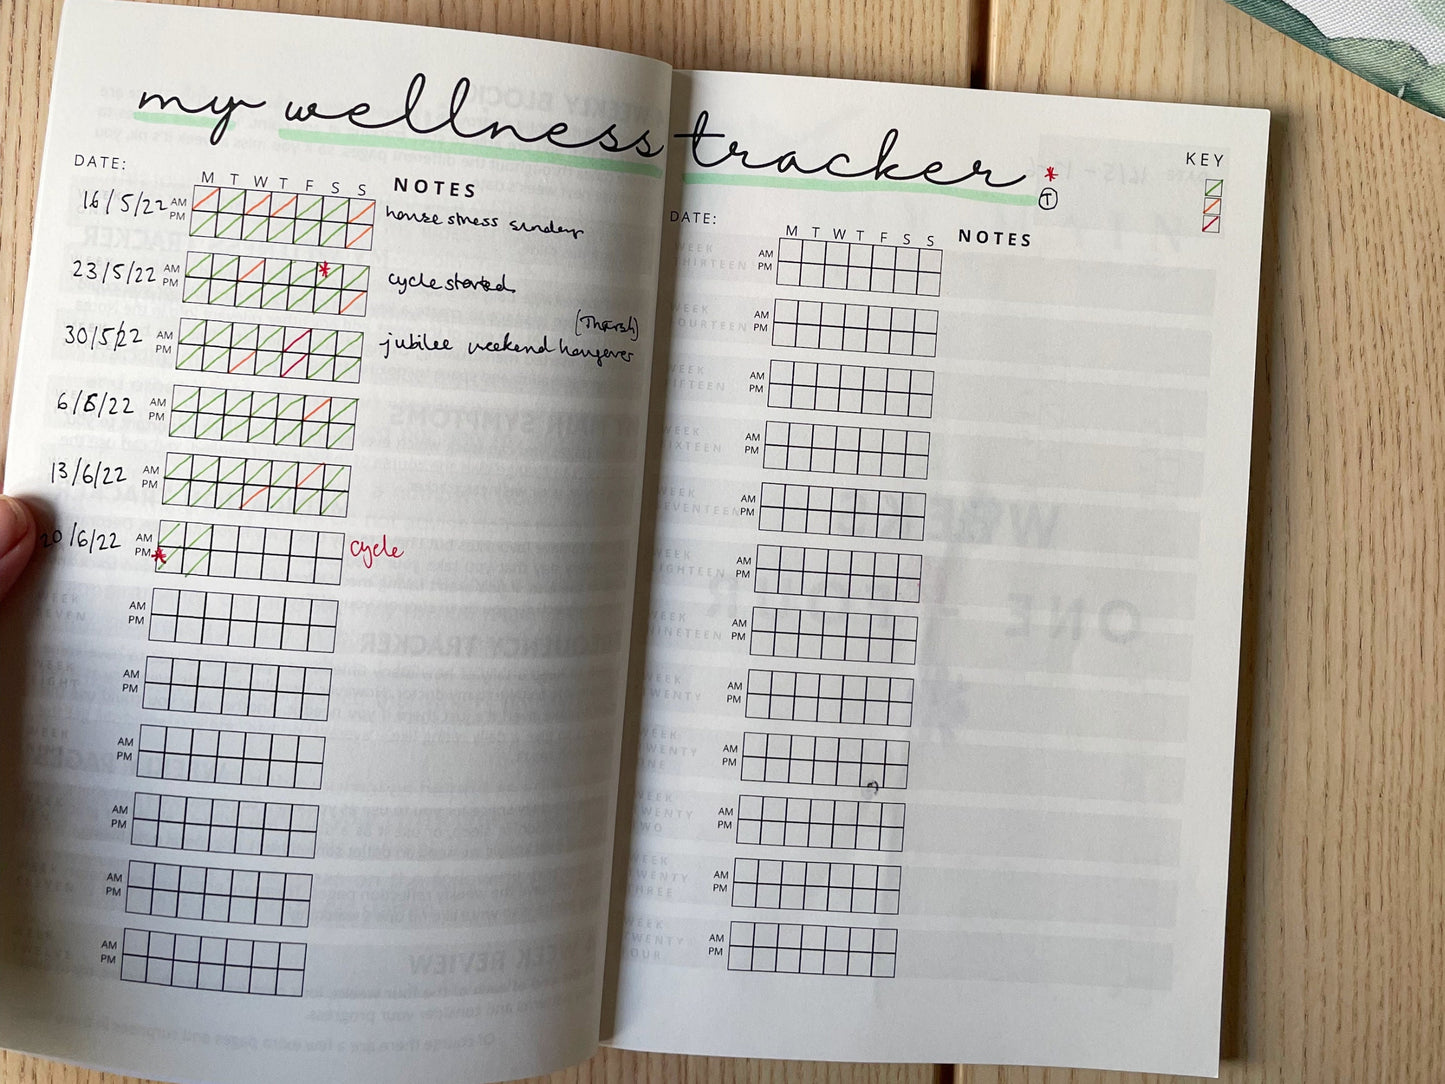 my wellness tracker
KEY
T
DATE:
M T W T F S S
NOTES
16/5/22
AM
PM
house stress sunday
23/5/22
AM
PM
cycle started
30/5/22
AM
PM
(Thursh)
jubilee weekend hangover
6/6/22
AM
PM
13/6/22
AM
PM
20/6/22
AM
PM
cycle
AM
PM
AM
PM
AM
PM
AM
PM
AM
PM
AM
PM
DATE:
M T W T F S S
NOTES
WEEK
THIRTEEN
AM
PM
WEEK
FOURTEEN
AM
PM
WEEK
FIFTEEN
AM
PM
WEEK
SIXTEEN
AM
PM
WEEK
SEVENTEEN
AM
PM
WEEK
EIGHTEEN
AM
PM
WEEK
NINETEEN
AM
PM
WEEK
TWENTY
AM
PM
WEEK
TWENTY
ONE
AM
PM
WEEK
TWENTY
TWO
AM
PM
WEEK
TWENTY
THREE
AM
PM
WEEK
TWENTY
FOUR
AM
PM